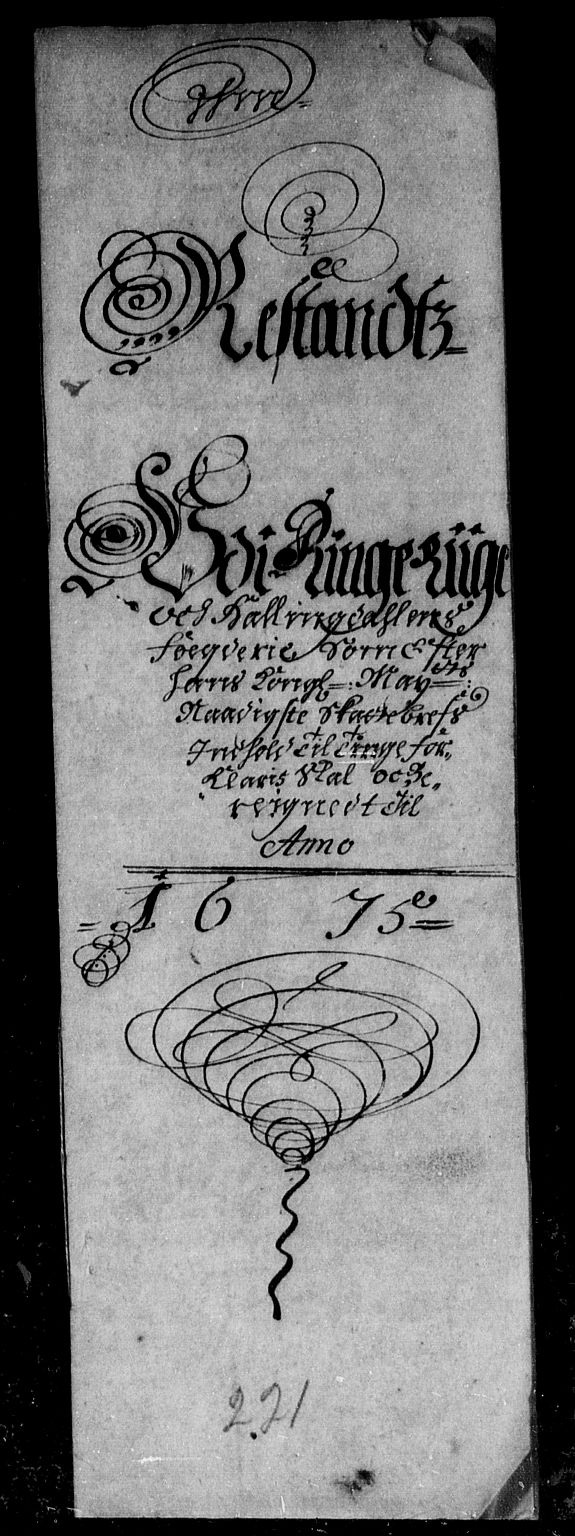 Restandtz
Udi Ringe Riige
och Hallingdahlens
Foegderie Som Efter
Hans Kongl: May:ts
Naadigste Skattebrefs
Indhold Til Tinge for,
Klaris Skal och Be,
reignedt Til
Anno
1675
221